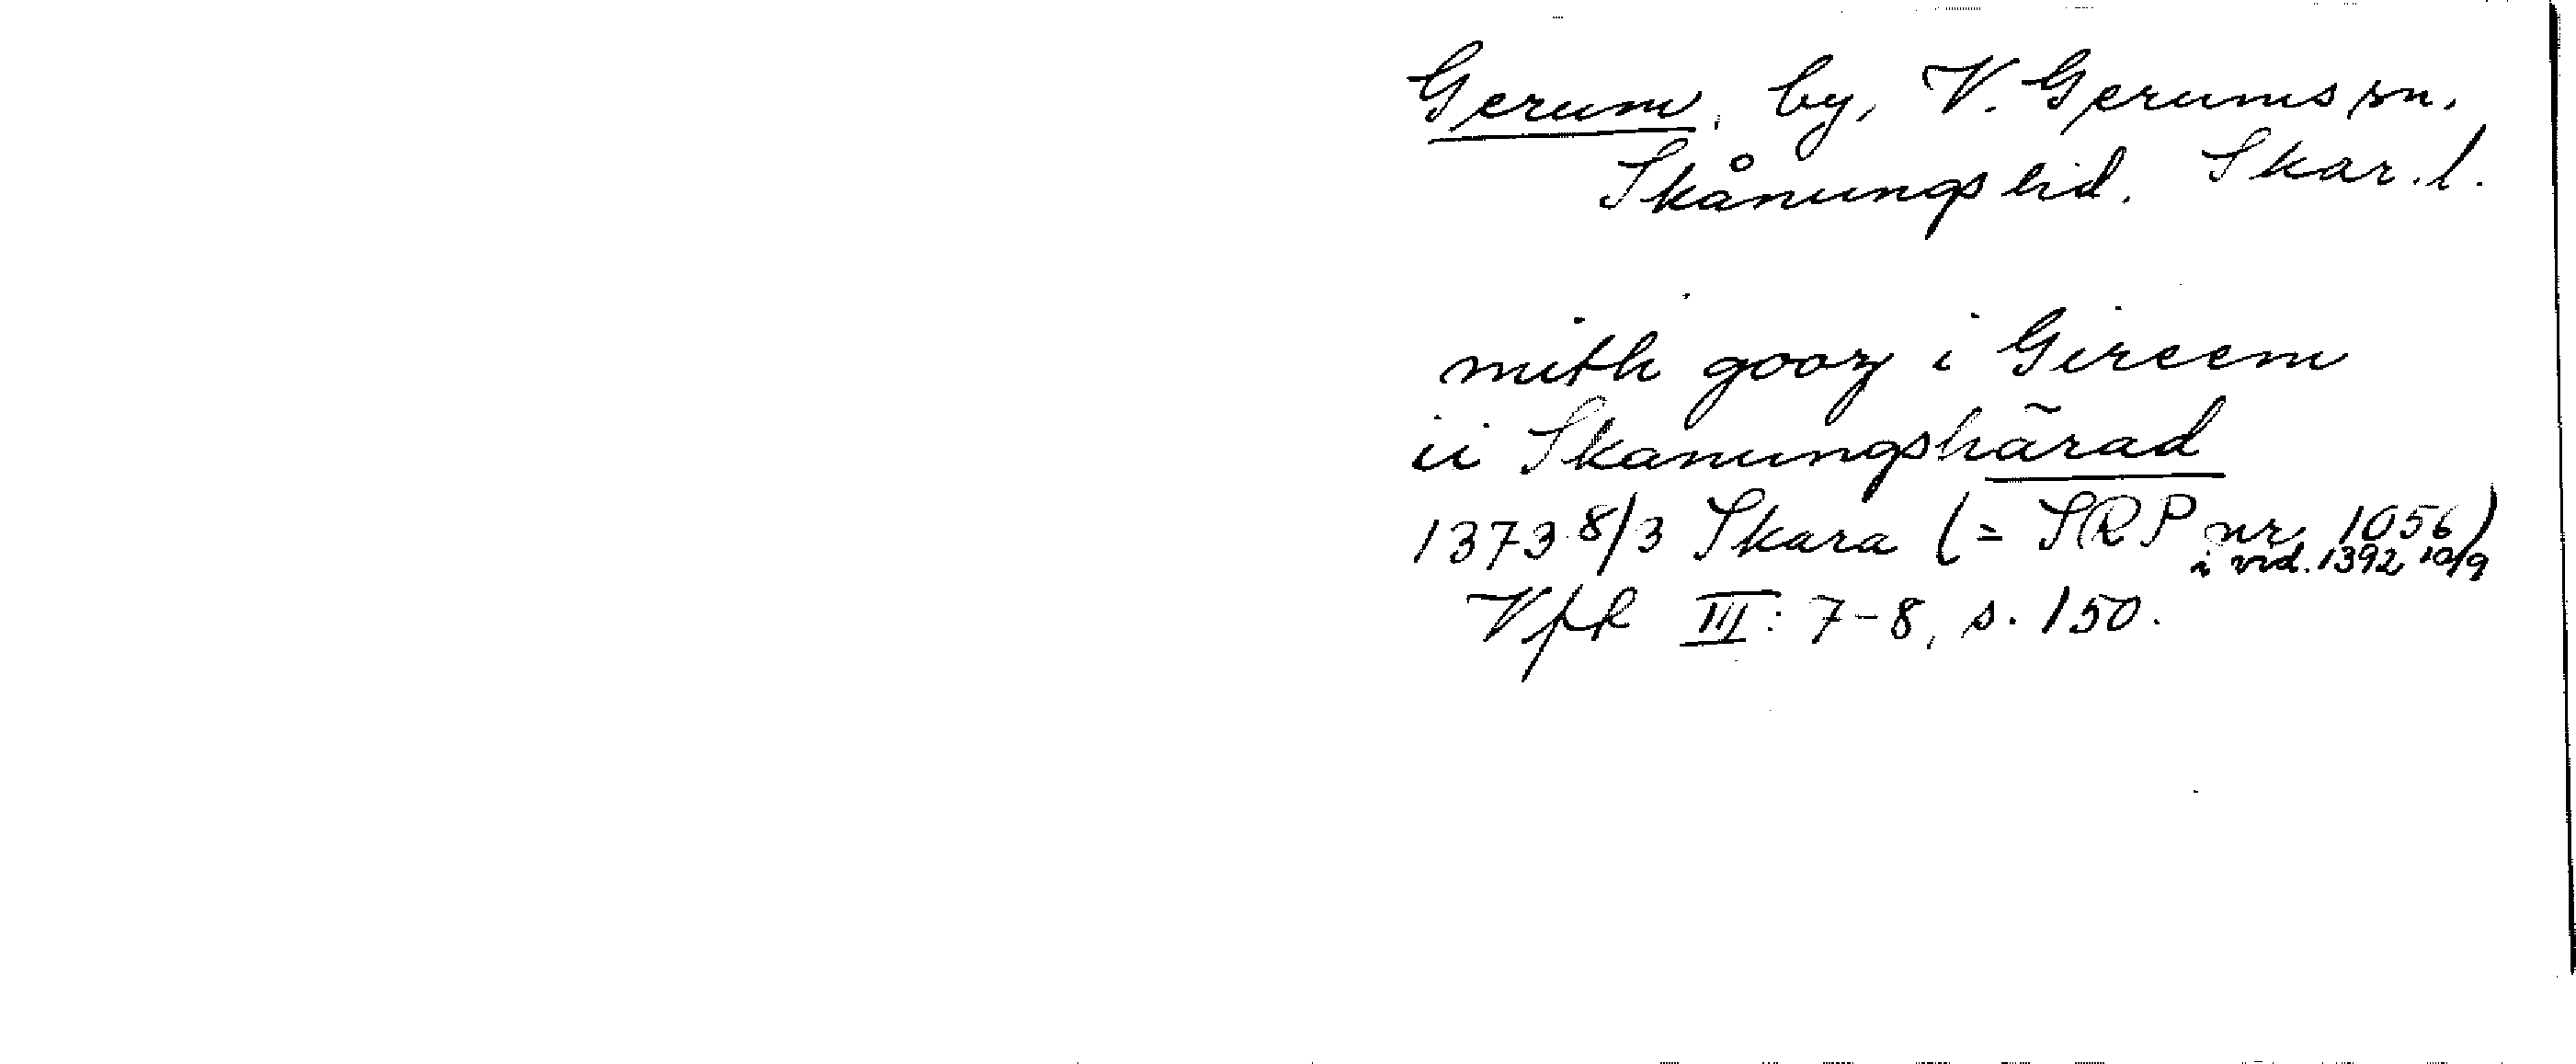 Gerum, by, V. Gerums sn.
Skånings hd. Skar. l.
mith gooz i Gireem
ii Skanungshärad
1373 8/3 Skara (= SRP nr 1056)
i vid. 1392 10/9
VfR III: 7-8, s. 150.